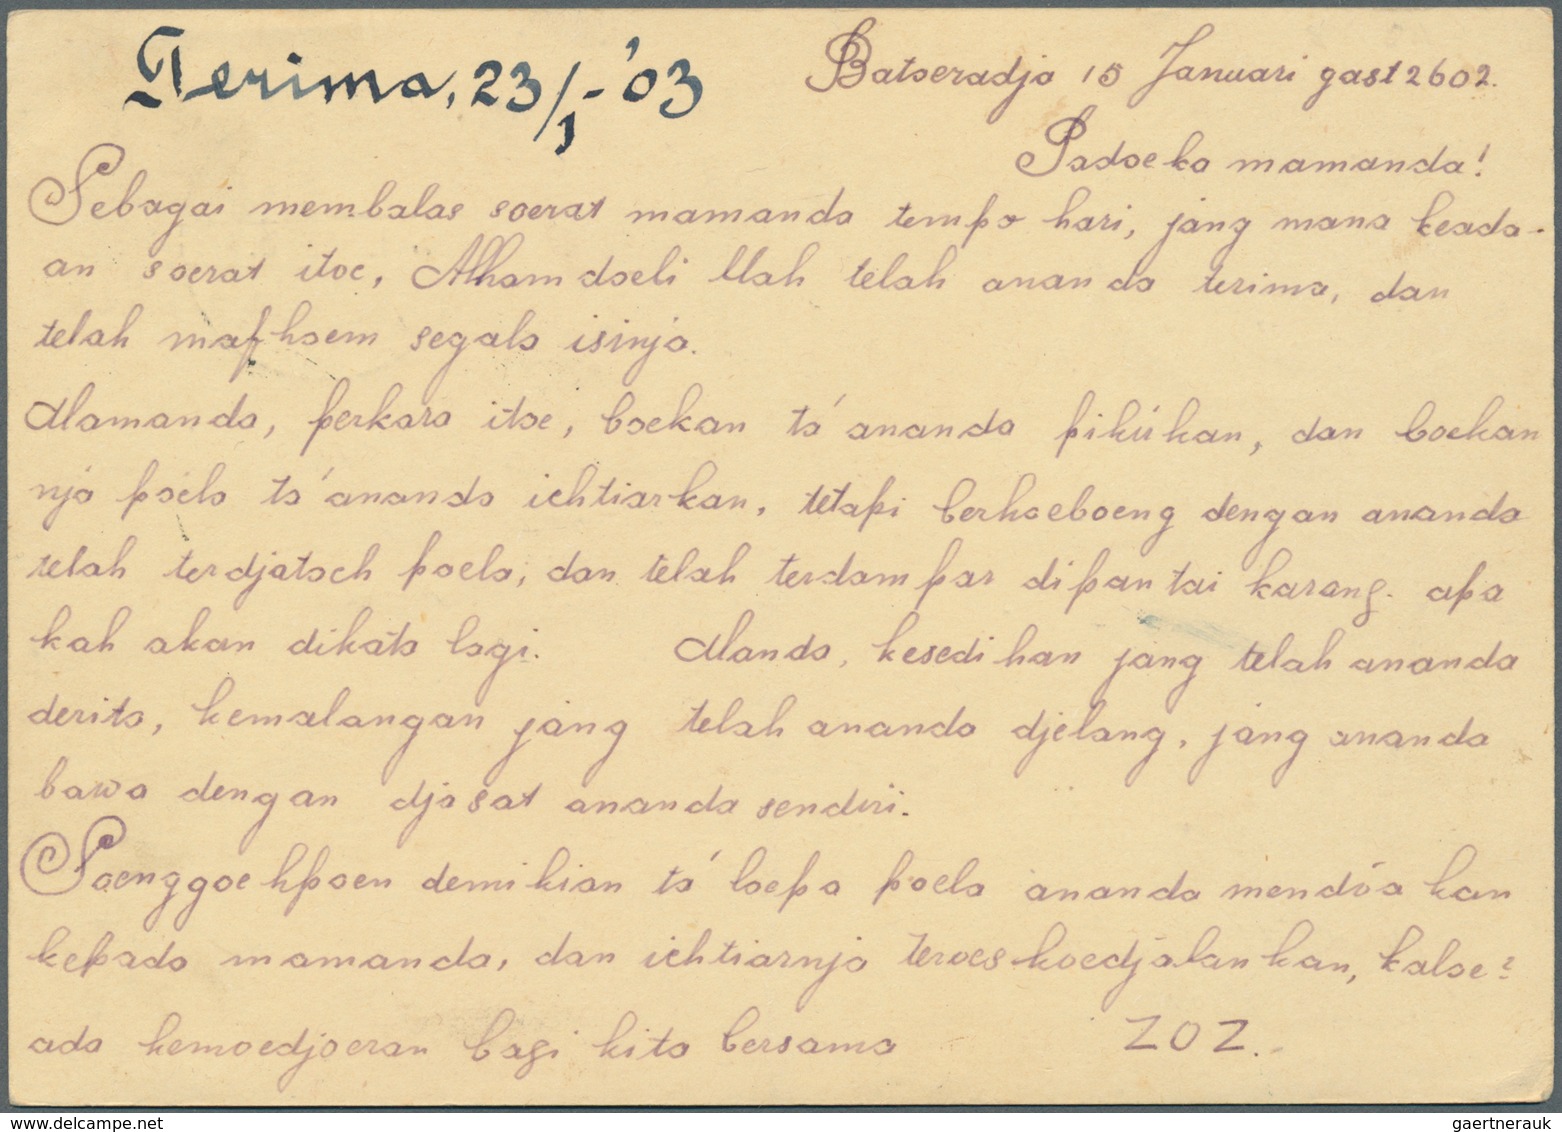 Terima, 23/1-'03
Batoeradja 15 Januari 2602.
Padoeka mamanda!
Sebagai membalas soerat mamanda tempo hari, jang mana keada-
an soerat itoe, Alhamdoeli llah telah ananda terima, dan
telah mafhoem segala isinja.
Mamanda, perkara itoe, boekan ta' ananda pikirkan, dan boekan
nja poela ta' ananda ichtiarkan, tetapi berhoeboeng dengan ananda
telah terdjatoeh poela, dan telah terdampar dipantai karang. apa
kah akan dikata lagi. Manda, kesedihan jang telah ananda
derita, kemalangan jang telah ananda djelang, jang ananda
bawa dengan djasat ananda sendiri.
Soenggoehpoen demikian ta' loepa poela ananda mendo'a kan
kepada mamanda, dan ichtiarnja teroes koedjalankan, kaloe2
ada kemoedjoeran bagi kita bersama ZOZ.-
gaertnerauk